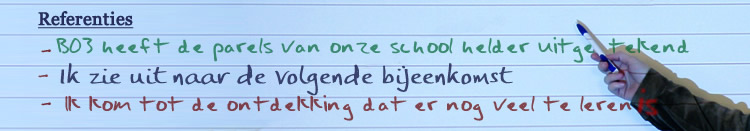 Referenties
- BO3 heeft de parels van onze school helder uitgetekend
- Ik zie uit naar de volgende bijeenkomst
- Ik kom tot de ontdekking dat er nog veel te leren is